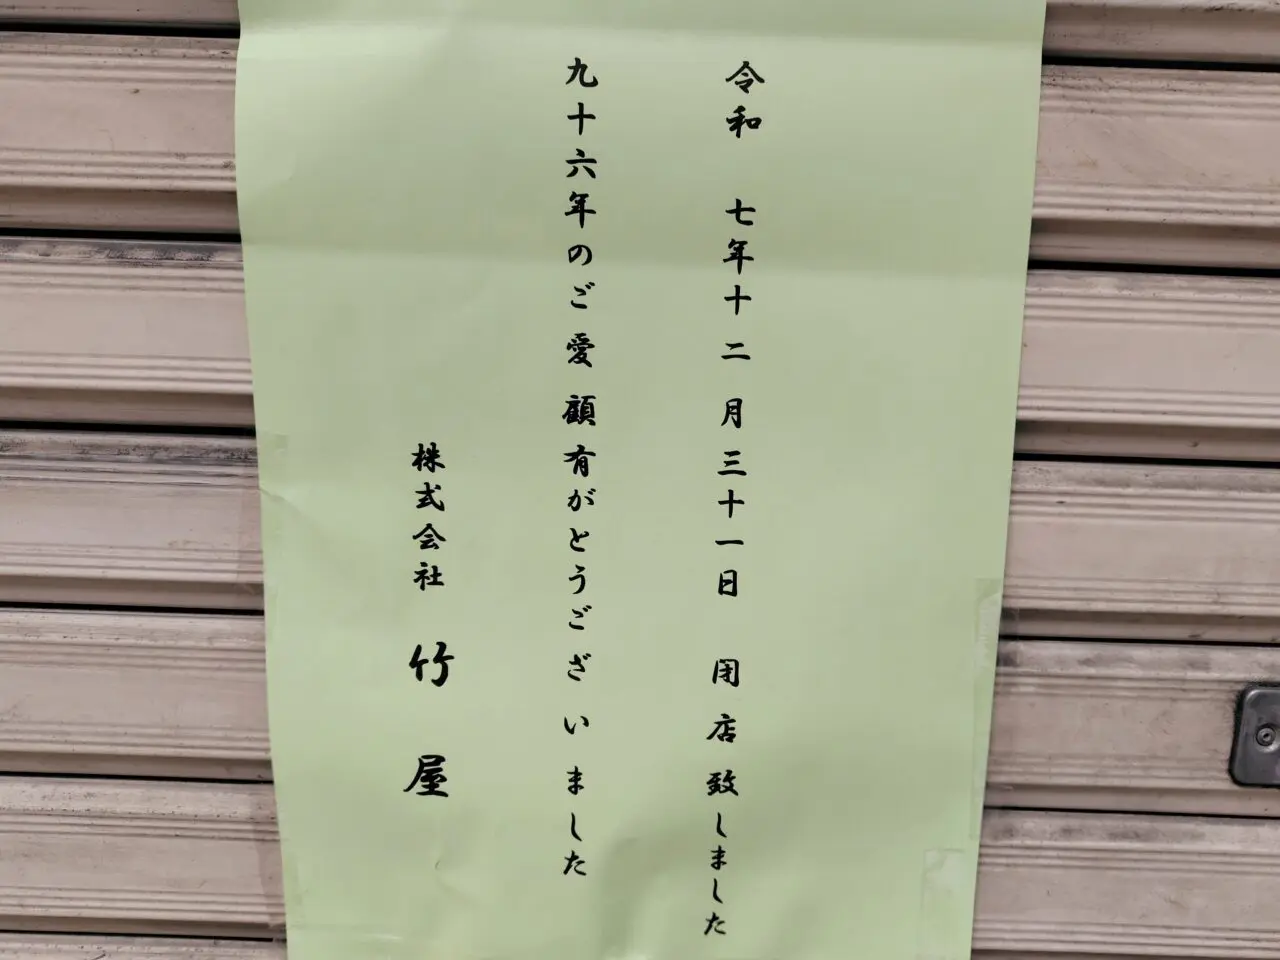 令和 七年十二月三十一日 閉店致しました
九十六年のご愛顧有がとうございました
株式会社 竹屋